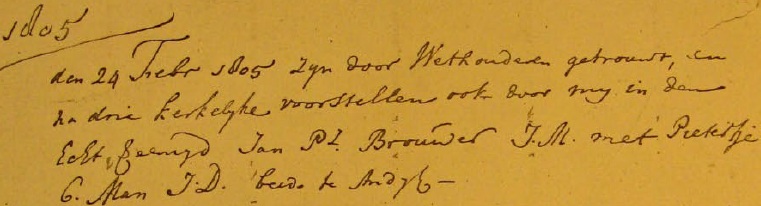 1805
den 24 Febr 1805 zyn door Wethouderen getrouwt, en
na drie kerkelyke voorstellen ook door my in den
Echt geenigd Jan Pz. Brouwer J.M. met Pietertje
C. Man J.D. beide te Andyk—